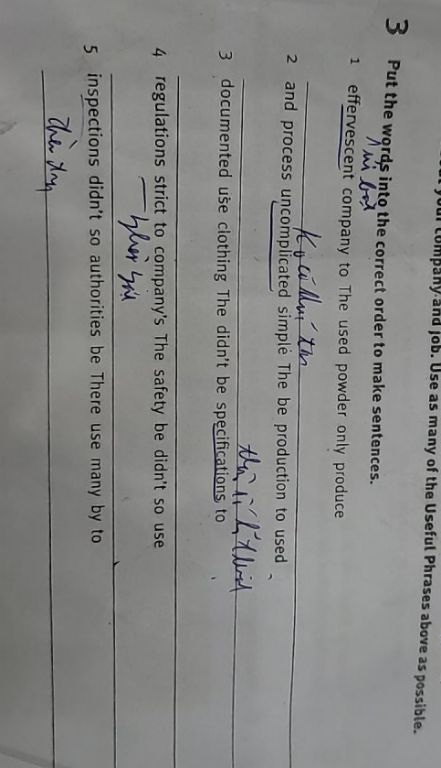 your company and job. Use as many of the Useful Phrases above as possible.
3 Put the words into the correct order to make sentences.
1 effervescent company to The used powder only produce
2 and process uncomplicated simple The be production to used
3 documented use clothing The didn't be specifications to
4 regulations strict to company's The safety be didn't so use
5 inspections didn't so authorities be There use many by to